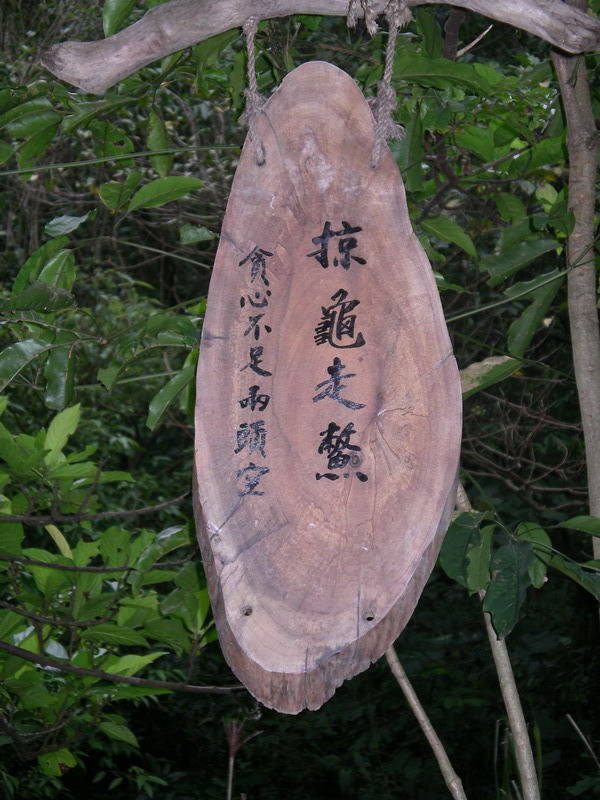 掠龜走鱉
貪心不足兩頭空